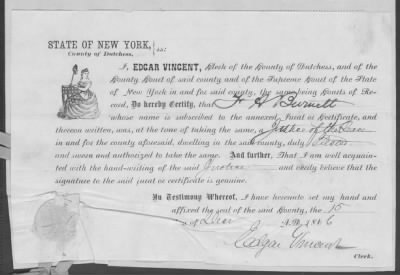 STATE OF NEW YORK, } ss:
County of Dutchess.
I, EDGAR VINCENT, Clerk of the County of Dutchess, and of the
County Court of said county and of the Supreme Court of the State
of New York in and for said county, the same being Courts of Re-
cord, Do hereby Certify, that A. Burnett
whose name is subscribed to the annexed Jurat or Certificate, and
thereon written, was, at the time of taking the same, a Justice of the Peace
in and for the county aforesaid, dwelling in the said county, duly
and sworn and authorized to take the same. And further, That I am well acquain-
ted with the hand-writing of the said Justice and verily believe that the
signature to the said jurat or certificate is genuine.
In Testimony Whereof, I have hereunto set my hand and
affixed the seal of the said County, the 15
of Decr A.D. 1866
Edgar Vincent
Clerk.